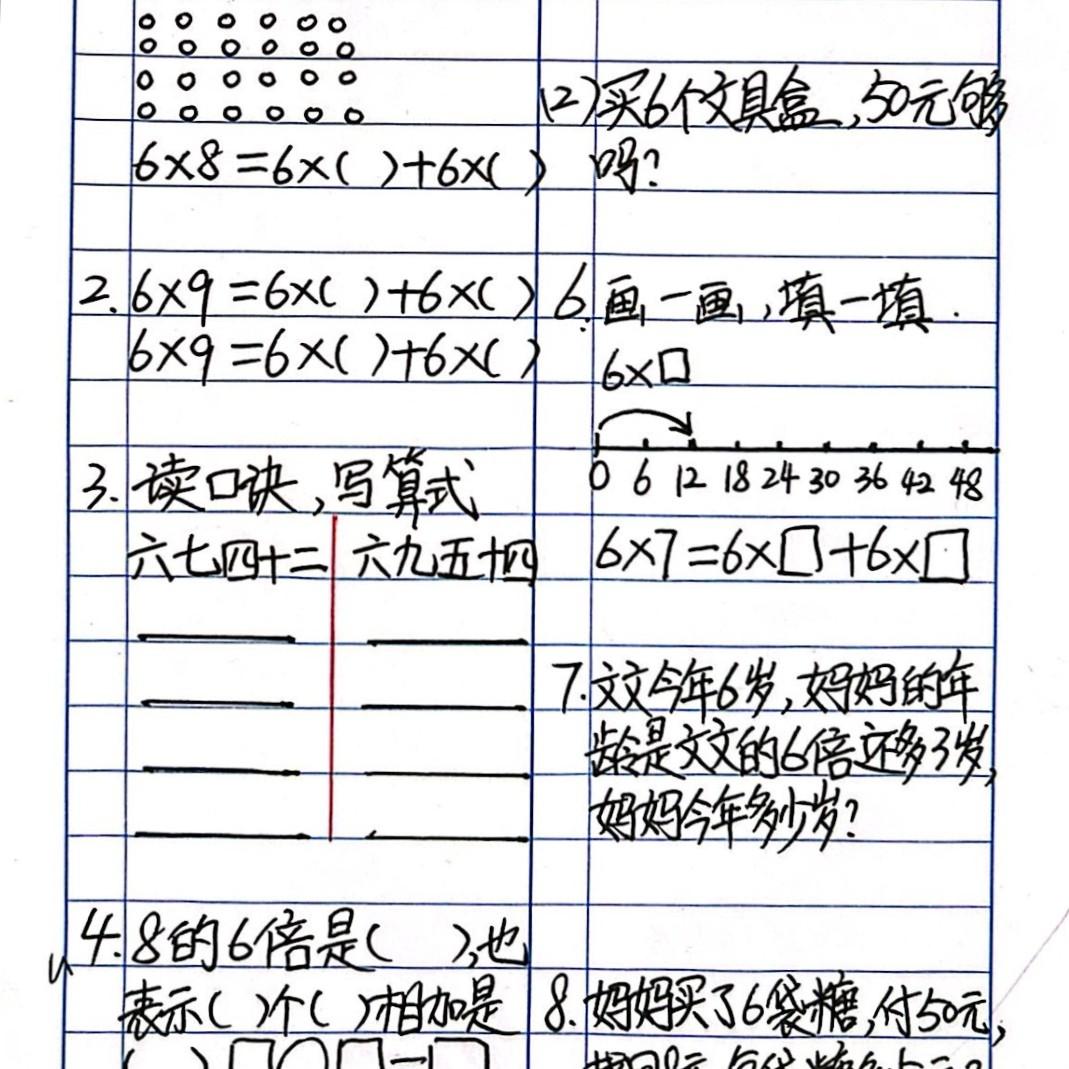 6×8=6×( )+6×( )
2. 6×9=6×( )+6×( )
6×9=6×( )+6×( )
3. 读口诀,写算式
六七四十二 六九五十四
4. 8的6倍是( ),也
表示( )个( )相加是
( )□○□=□
(2)买6个文具盒,50元够
吗?
6. 画一画,填一填.
6×□
0 6 12 18 24 30 36 42 48
6×7=6×□+6×□
7. 文文今年6岁,妈妈的年
龄是文文的6倍还多3岁,
妈妈今年多少岁?
8. 妈妈买了6袋糖,付50元,